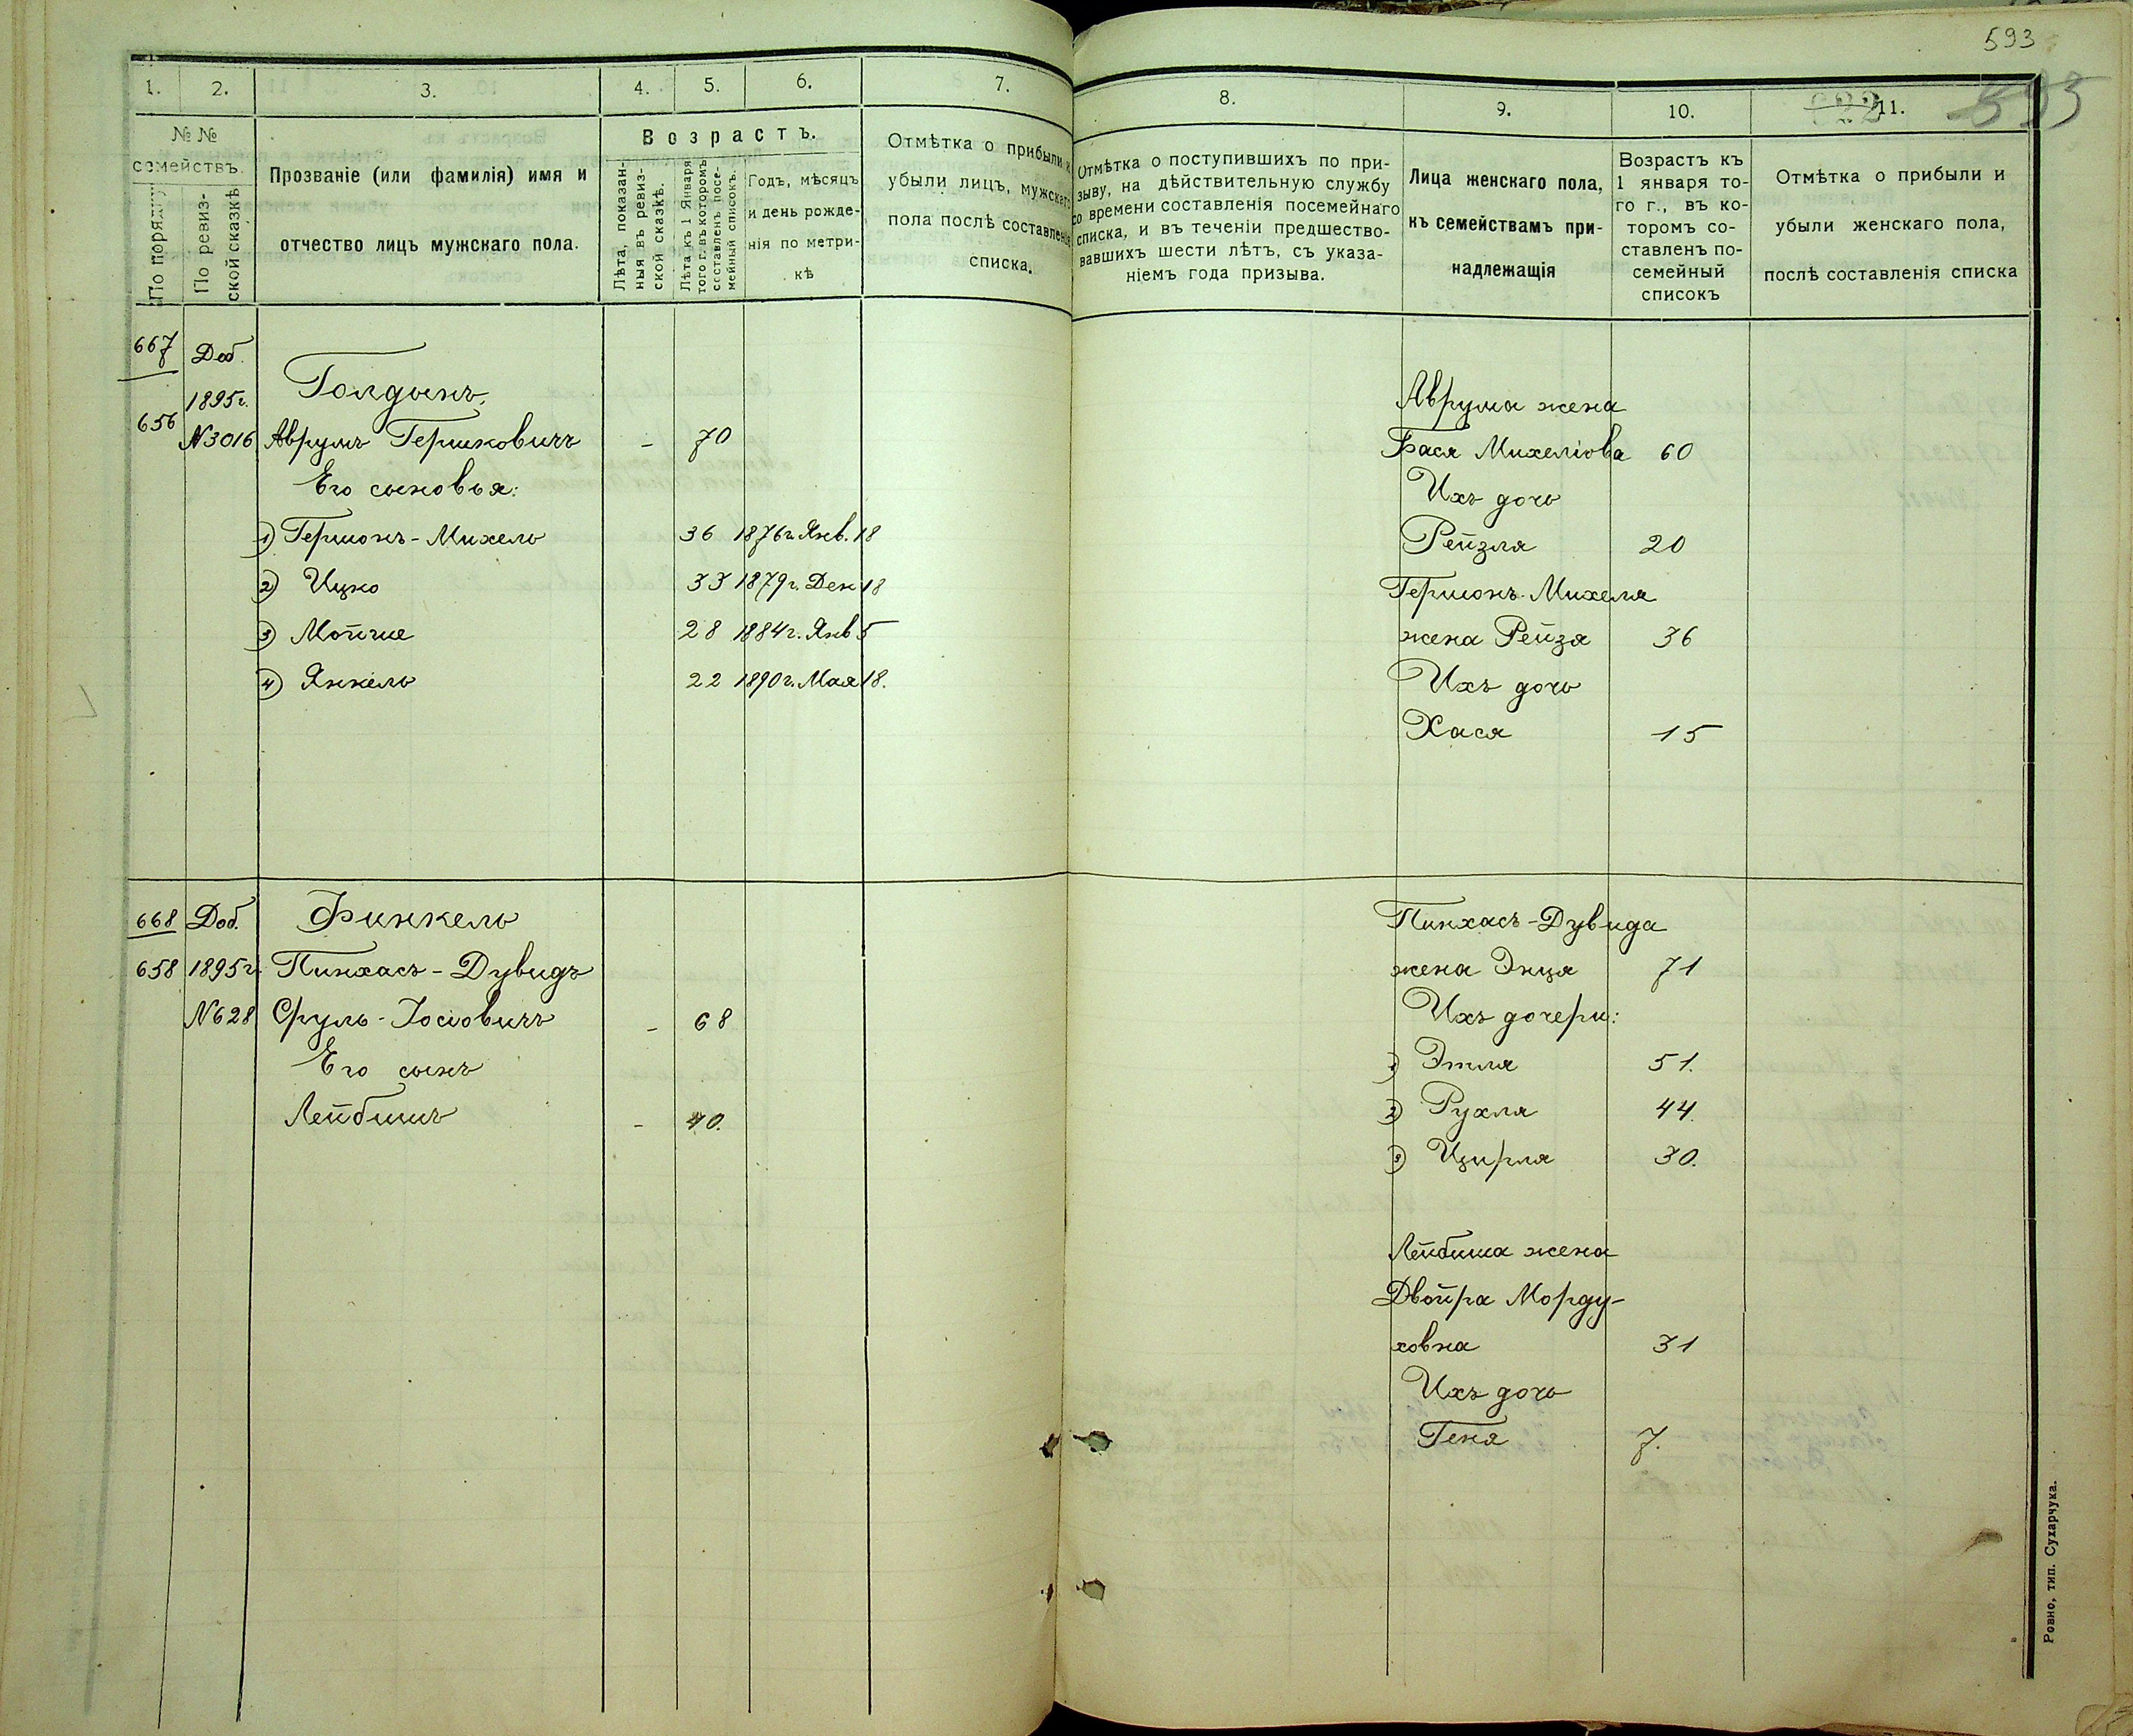 593
593
1.
2.
3.
4.
5.
6.
7.
№ №
семействъ.
По порядку
По ревиз-
ской сказкѣ
Прозваніе (или фамилія) имя и
отчество лицъ мужскаго пола.
Возрастъ.
Лѣта, показан-
ныя въ ревиз-
ской сказкѣ.
Лѣта къ 1 Января
того г. въ которомъ
составленъ посе-
мейный списокъ.
Годъ, мѣсяцъ
и день рожде-
нія по метри-
кѣ
Отмѣтка о прибыли и
убыли лицъ, мужскаго
пола послѣ составленія
списка.
667 Доб.
Голдынъ
1895г.
656
№3016 Аврумъ Гершковичъ - 70
Его сыновья:
1) Гершонъ-Михель 36 1876г. Янв. 18
2) Ицко 33 1879г. Дек 18
3) Мойше 28 1884г. Янв 5
4) Янкель 22 1890г. Мая 18.
668 Доб. Финкель
658 1895г. Пинхасъ-Дувидъ
№628 Сруль-Іосіовичъ - 68
Его сынъ
Лейбишъ - 40.
8.
9.
10.
11.
Отмѣтка о поступившихъ по при-
зыву, на дѣйствительную службу
со времени составленія посемейнаго
списка, и въ теченіи предшество-
вавшихъ шести лѣтъ, съ указа-
ніемъ года призыва.
Лица женскаго пола,
къ семействамъ при-
надлежащія
Возрастъ къ
1 января то-
го г., въ ко-
торомъ со-
ставленъ по-
семейный
списокъ
Отмѣтка о прибыли и
убыли женскаго пола,
послѣ составленія списка
Аврума жена
Бася Михеліова 60
Ихъ дочь
Рейзля 20
Гершонъ-Михеля
жена Рейзя 36
Ихъ дочь
Хася 15
Пинхасъ-Дувида
жена Энця 71
Ихъ дочери:
1) Этля 51.
2) Рухля 44.
3) Цирля 30.
Лейбиша жена
Двойра Морду-
ховна 31
Ихъ дочь
Геня 7.
Ровно, тип. Сухарчука.